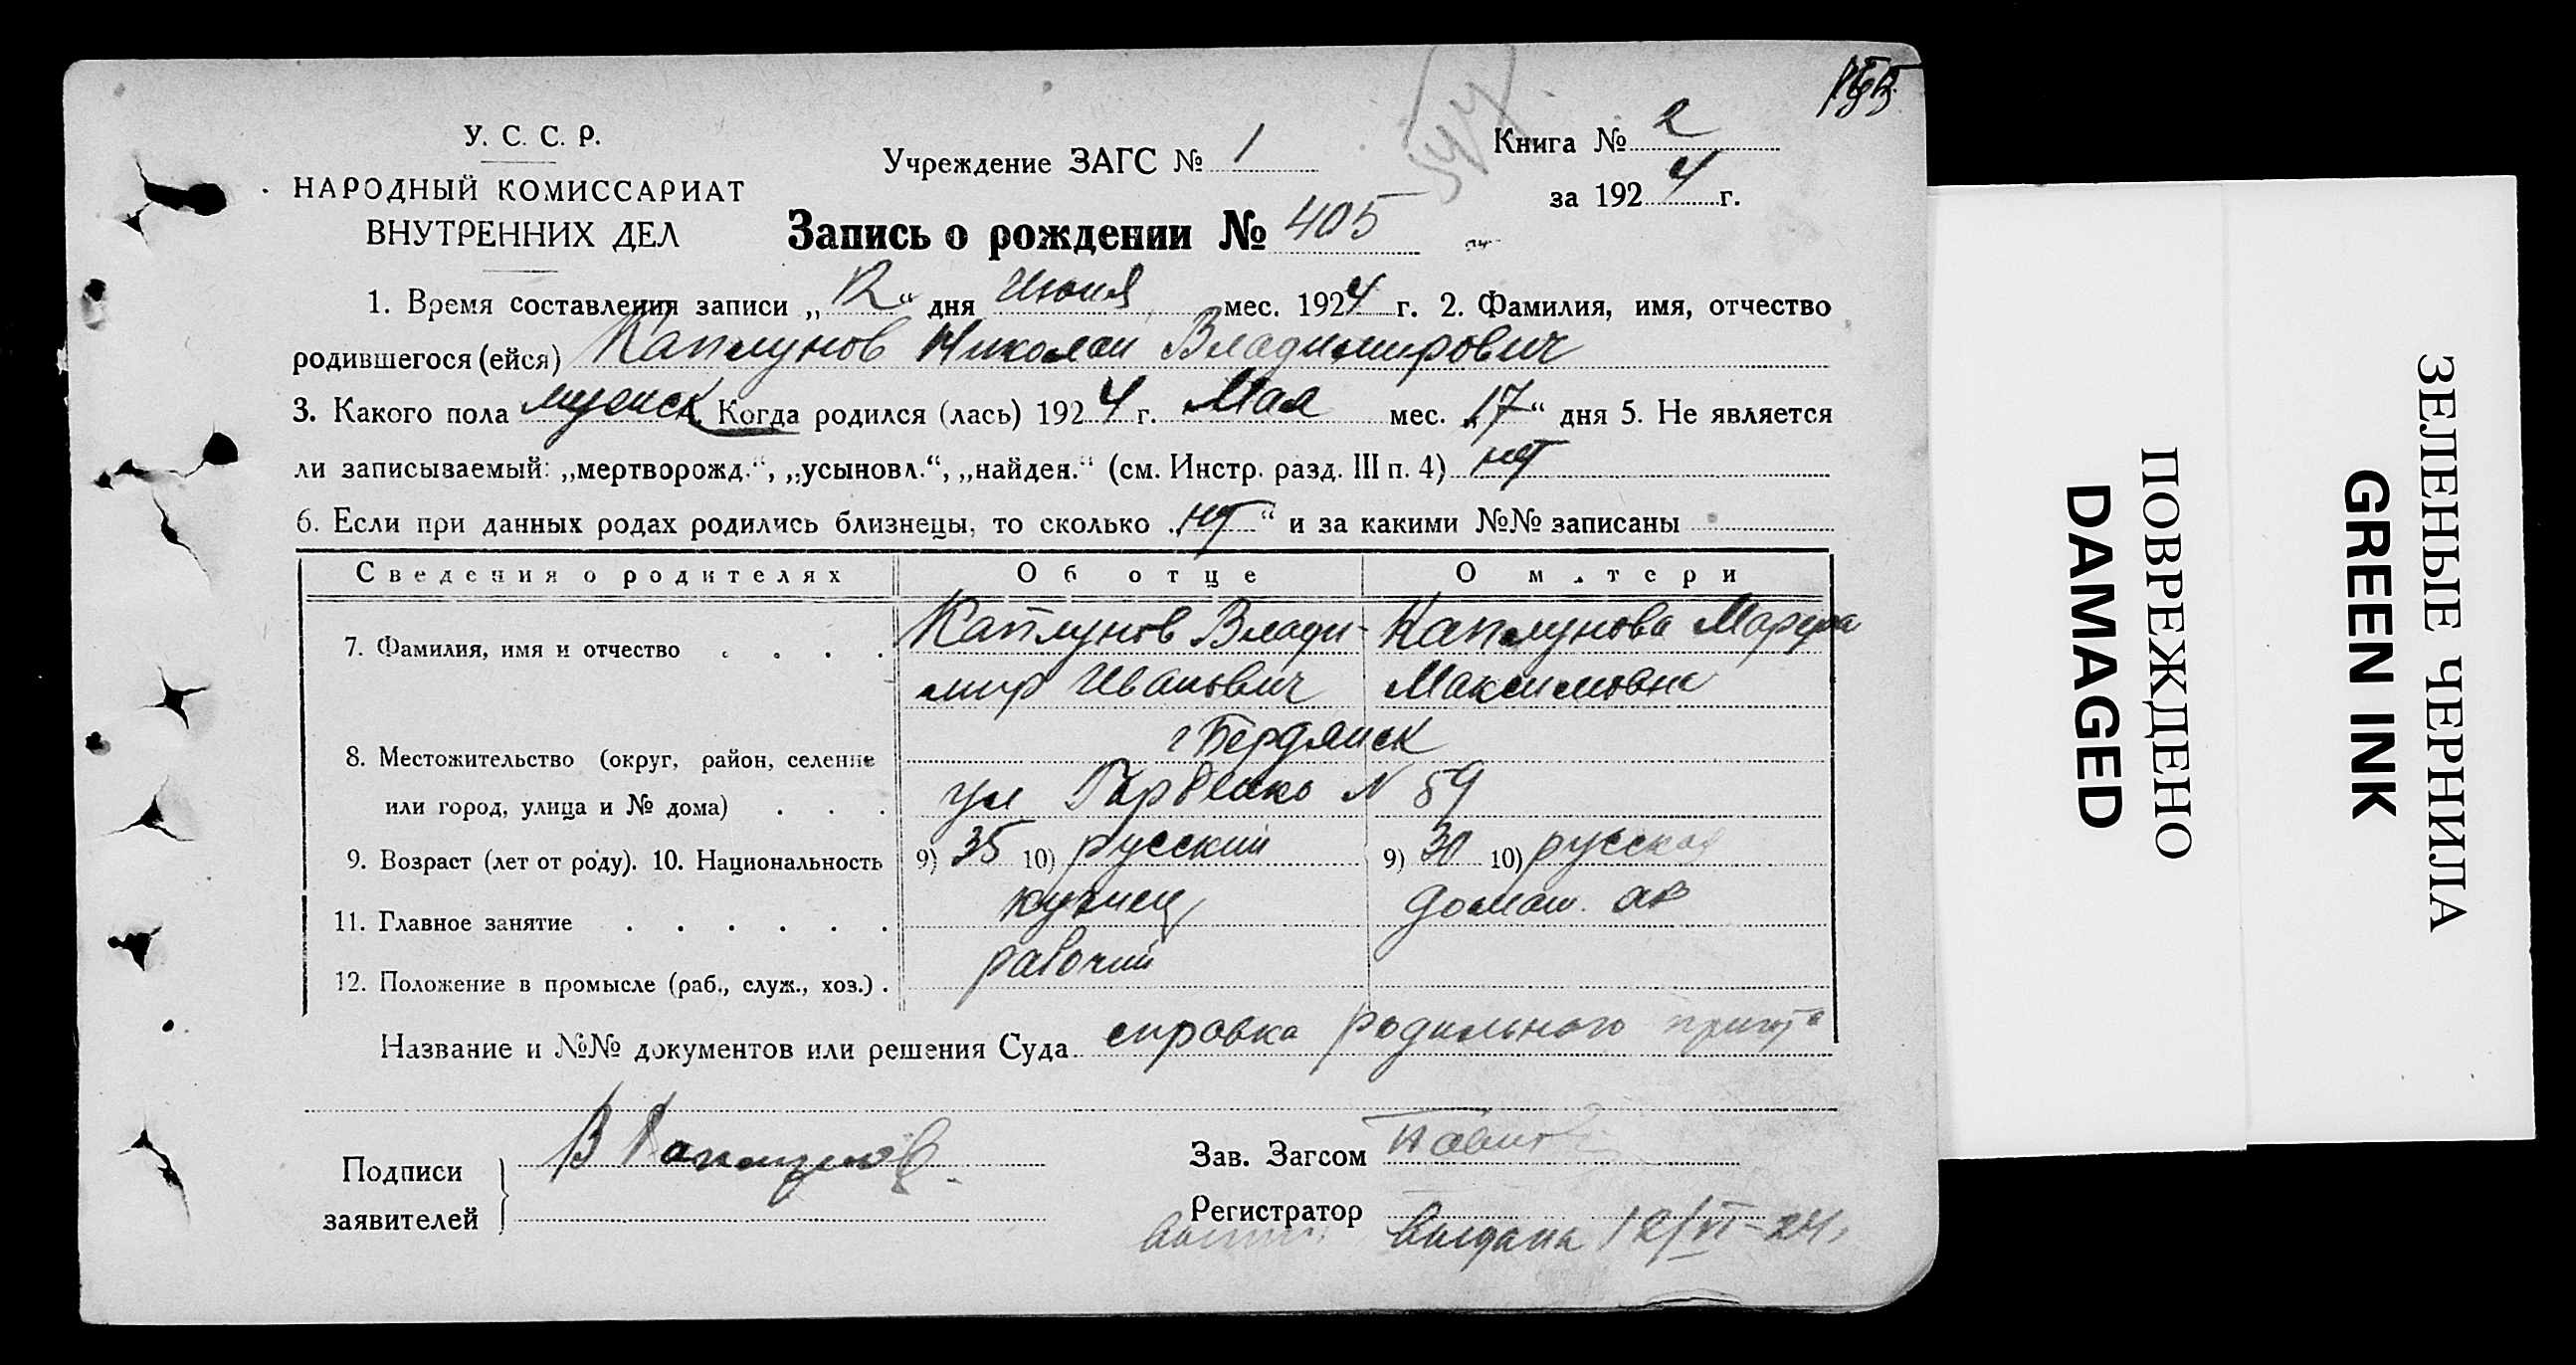 У. С. С. Р.
НАРОДНЫЙ КОМИССАРИАТ
ВНУТРЕННИХ ДЕЛ
Учреждение ЗАГС № 1
Книга № 2
за 1924 г.
Запись о рождении № 405
1. Время составления записи „12“ дня Июня мес. 1924 г. 2. Фамилия, имя, отчество
родившегося (ейся) Каплунов Николай Владимирович
3. Какого пола мужск. Когда родился (лась) 1924 г. Мая мес. „17“ дня 5. Не является
ли записываемый: „мертворожд.“, „усыновл.“, „найден.“ (см. Инстр. разд. III п. 4) нет
6. Если при данных родах родились близнецы, то сколько „нет“ и за какими №№ записаны
Сведения о родителях Об отце О м.тери
7. Фамилия, имя и отчество . . . . Каплунов Влади- Каплунова Марфа
мир Иванович Максимовна
г Бердянск
8. Местожительство (округ, район, селение
или город, улица и № дома) . . . ул N 59
9. Возраст (лет от роду). 10. Национальность 9) 35 10) русский 9) 30 10) русская
11. Главное занятие . . . . . . кузнец домаш.
12. Положение в промысле (раб., служ., хоз.) . рабочий
Название и №№ документов или решения Суда справка родильного приюта
Подписи
заявителей
В Каплунов
Зав. Загсом
Регистратор
Выдана 12/VI-24
ПОВРЕЖДЕНО
DAMAGED
ЗЕЛЕНЫЕ ЧЕРНИЛА
GREEN INK